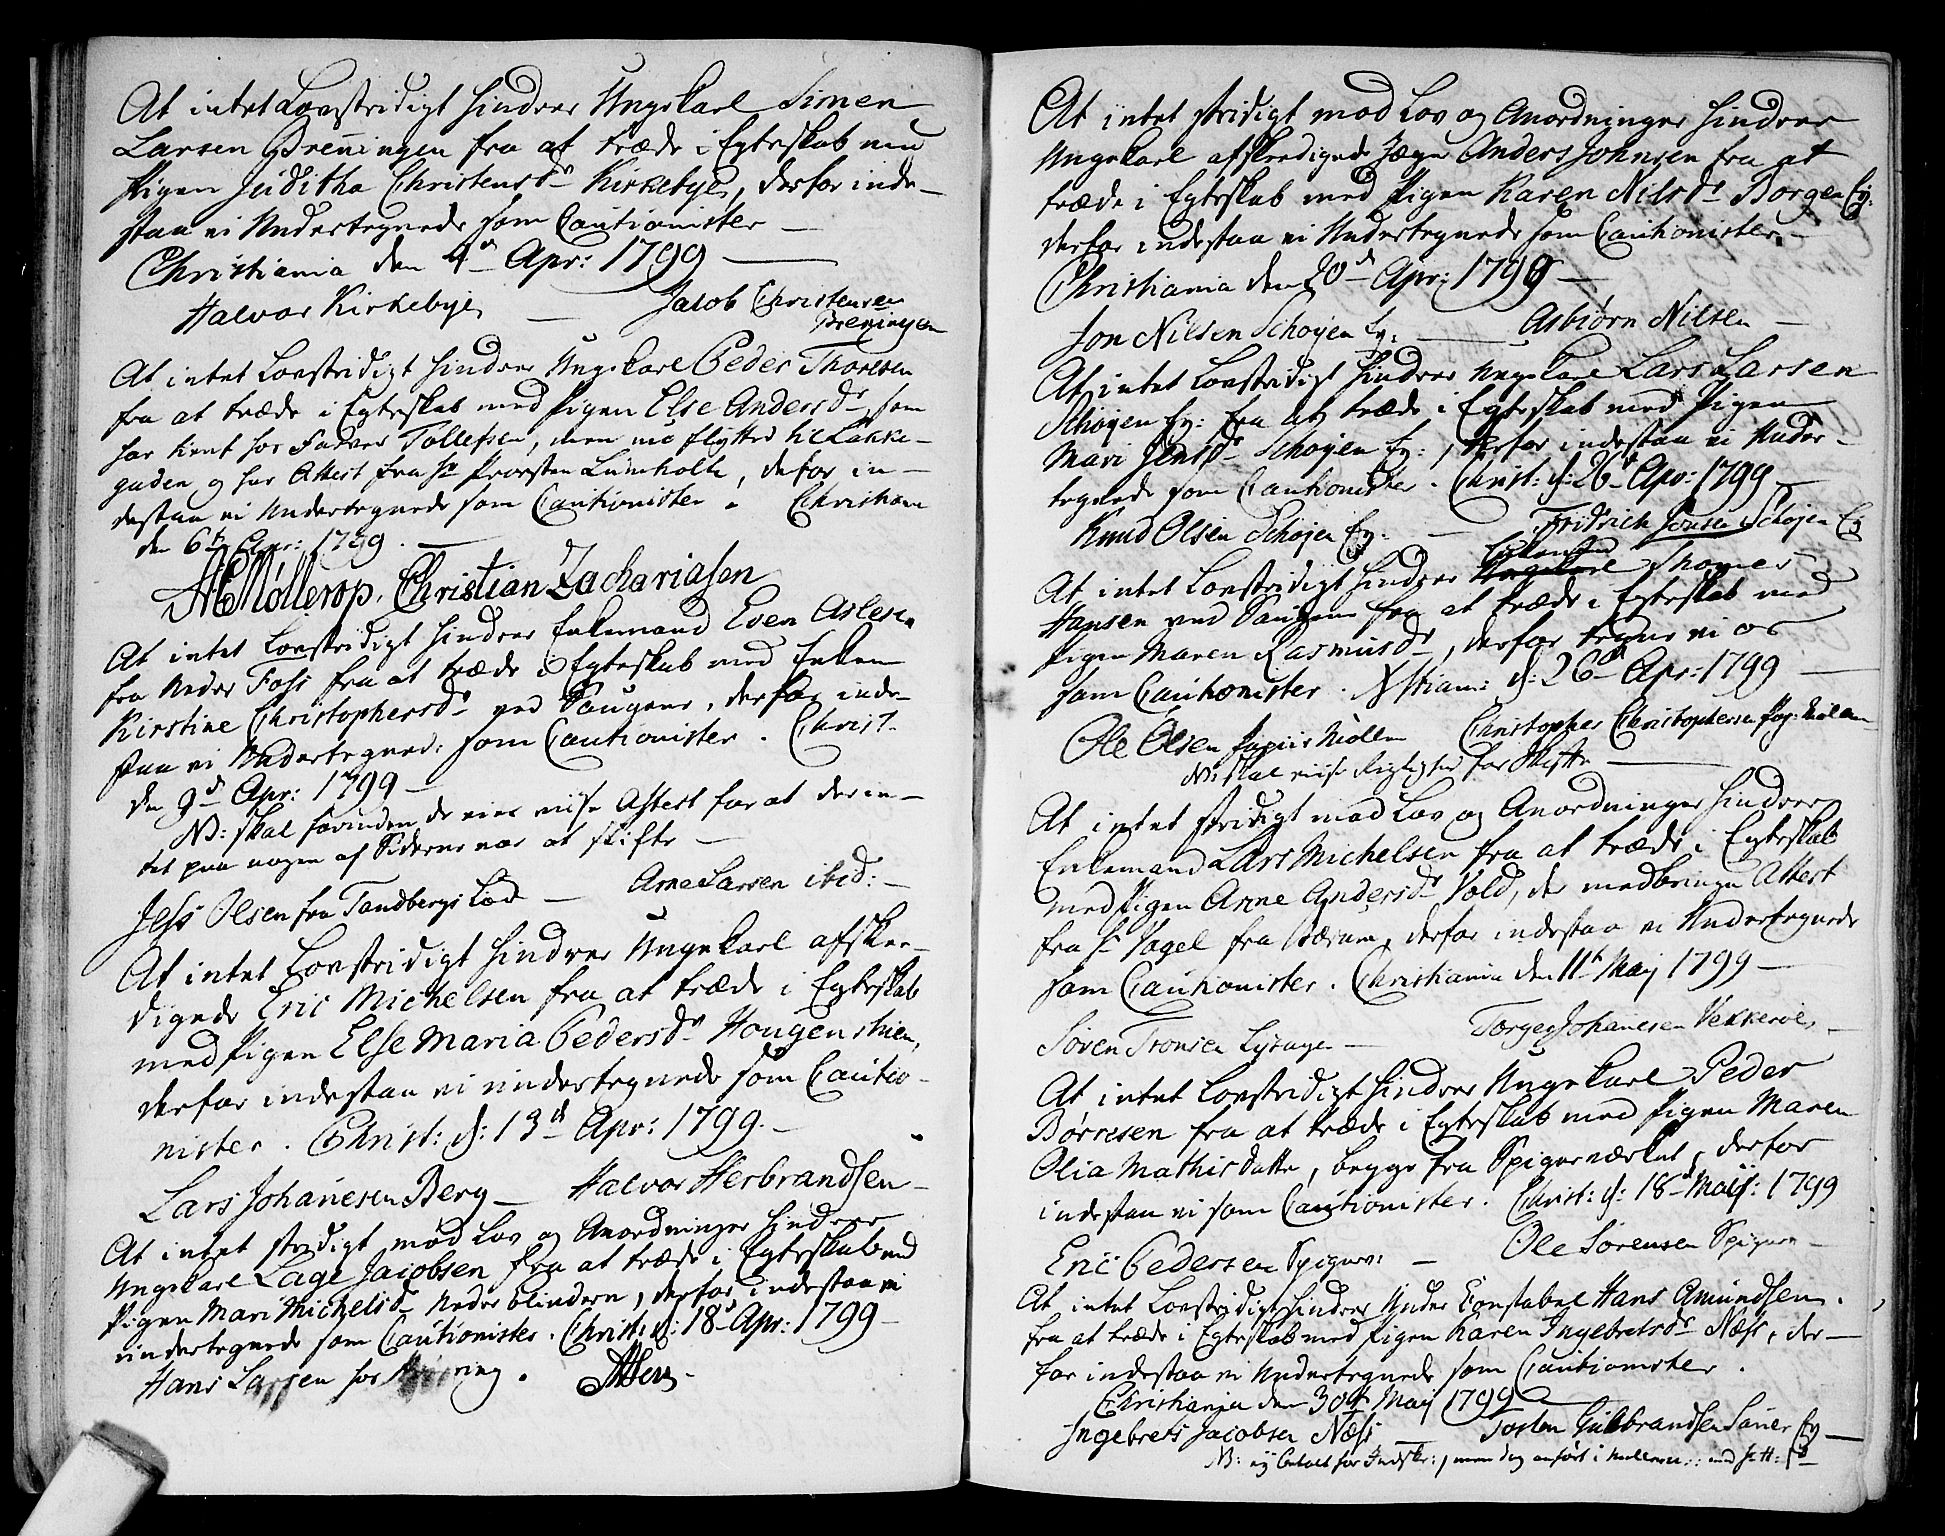 At intet Lovstridigt hindrer Ungekarl Simen
Larsen Breningen fra at træde i Egteskab med
Pigen Juditha Christensd. Kirkebye, derfor inde-
staa vi Undertegnede som Cautionister —
Christiania den 4de Apr: 1799 —
Halvor Kirkebye — Jacob Christensen
Breningen
At intet Lovstridigt hindrer Ungekarl Peder Thoresen
fra at træde i Egteskab med Pigen Else Andersd. som
har tient hos Farver Tollefsen, men nu flyttet til Lakke-
gaden og har Attest fra Hr Provsten Lumholtz, derfor in-
destaa vi Undertegnede som Cautionister. Christiania
den 6te Apr: 1799. —
Møllerop. Christian Zachariasen
At intet Lovstridigt hindrer Enkemand Even Aslesen
fra Neder Foss fra at træde i Egteskab med Enken
Kirstine Christophersd. ved Saugene, derfor inde-
staa vi Undertegned: som Cautionister. Christ.
den 9de Apr: 1799 —
NB: skal forinden de vies viise Attest for at der in-
tet paa nogen af Siderne var at skifte —
Jess Olsen fra Tandbergs Lød — Arne Larsen ibid: —
At intet Lovstridigt hindrer Ungekarl afskee-
digede Eric Michelsen fra at træde i Egteskab
med Pigen Else Maria Pedersd. Hougenstuen,
derfor indestaa vi undertegnede som Cautio-
nister. Christ: d: 13de Apr: 1799. —
Lars Johanesen Berg — Halvor Herbrandsen —
At intet stridigt mod Lov og Anordninger hindrer
Ungekarl Lage Jacobsen fra at træde i Egteskab med
Pigen Mari Michelsd. Neder Blindern, derfor indestaa vi
undertegnede som Cautionister. Christ: d: 18de Apr: 1799 —
Hans Larsen hos
At intet stridigt mod Lov og Anordninger hindrer
Ungekarl afskeedigede Jæger Anders Johnsen fra at
træde i Egteskab med Pigen Karen Nilsd. Borgen Ey:
derfor indestaa vi Undertegnede som Cautionister —
Christiania den 20de Apr: 1799 —
Jon Nilsen Schøyen Ey: — Asbiørn Nilsen —
At intet Lovstridigt hindrer Ungekarl Lars Larsen
Schøyen Ey: fra at træde i Egteskab med Pigen
Mari Jensd. Schøyen Ey:, derfor indestaa vi Under-
tegnede som Cautionister. Christ: d: 26de Apr: 1799 —
Knud Olsen Schøjen Ey: — Fridrich Jonsen Schøjen Ey
Enkemand
At intet Lovstridigt hindrer Ungekarl Thomes
Hansen ved Saugene fra at træde i Egteskab med
Pigen Maren Rasmusd., derfor tegner vi os
som Cautionister. Xstian: d: 26de Apr: 1799 —
Ole Olsen Papiir Møllen Christopher Christophersen Pap: Møllen
NB: skal viise Rigtighed for Skifte —
At intet stridigt mod Lov og Anordninger hindrer
Enkemand Lars Michelsen fra at træde i Egteskab
med Pigen Anne Andersd. Vold, der medbringer Attest
fra Hr Vogel fra Bærum, derfor indestaa vi Undertegnede
som Cautionister. Christiania den 11te Maij 1799 —
Søren Tronsen Lysager — Torger Johanesen Vekkerøe —
At intet Lovstridigt hindrer Ungekarl Peder
Børresen fra at træde i Egteskab med Pigen Maren
Olia Mathisdatter, begge fra Spigerværket, derfor
indestaa vi som Cautionister. Christ: d: 18de Maij: 1799
Eric Pedersen Spigerv: — Ole Sørensen Spigerv —
At intet Lovstridigt hindrer Under Constabel Hans Amundsen.
fra at træde i Egteskab med Pigen Karen Ingebretsd. Næss, der-
for indestaa vi Undertegnede som Cautionister.
Christiania den 30te Maij 1799 —
Ingebret Jacobsen Næss — Torsten Gulbrandsen Saner Ey —
NB: ej betalt for Indskr:, men dog anført i